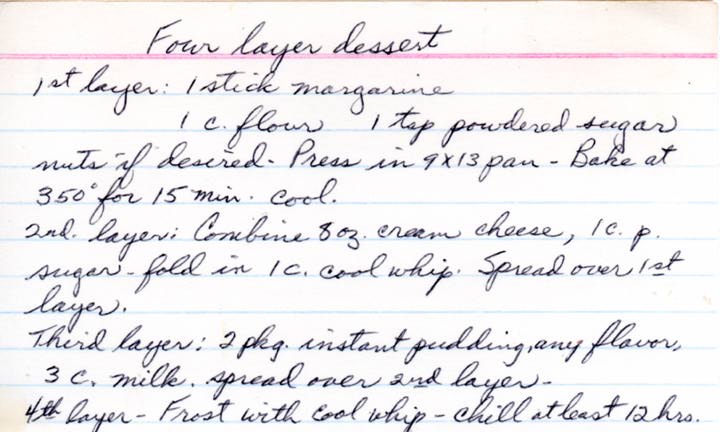 Four layer dessert
1st layer: 1 stick margarine
1 c. flour 1 tsp powdered sugar
nuts if desired - Press in 9x13 pan - Bake at
350° for 15 min. cool.
2nd. layer: Combine 8 oz. cream cheese, 1 c. p.
sugar - fold in 1 c. cool whip. Spread over 1st
layer.
Third layer: 2 pkg. instant pudding, any flavor,
3 c. milk. spread over 2nd layer -
4th layer - Frost with cool whip - chill at least 12 hrs.